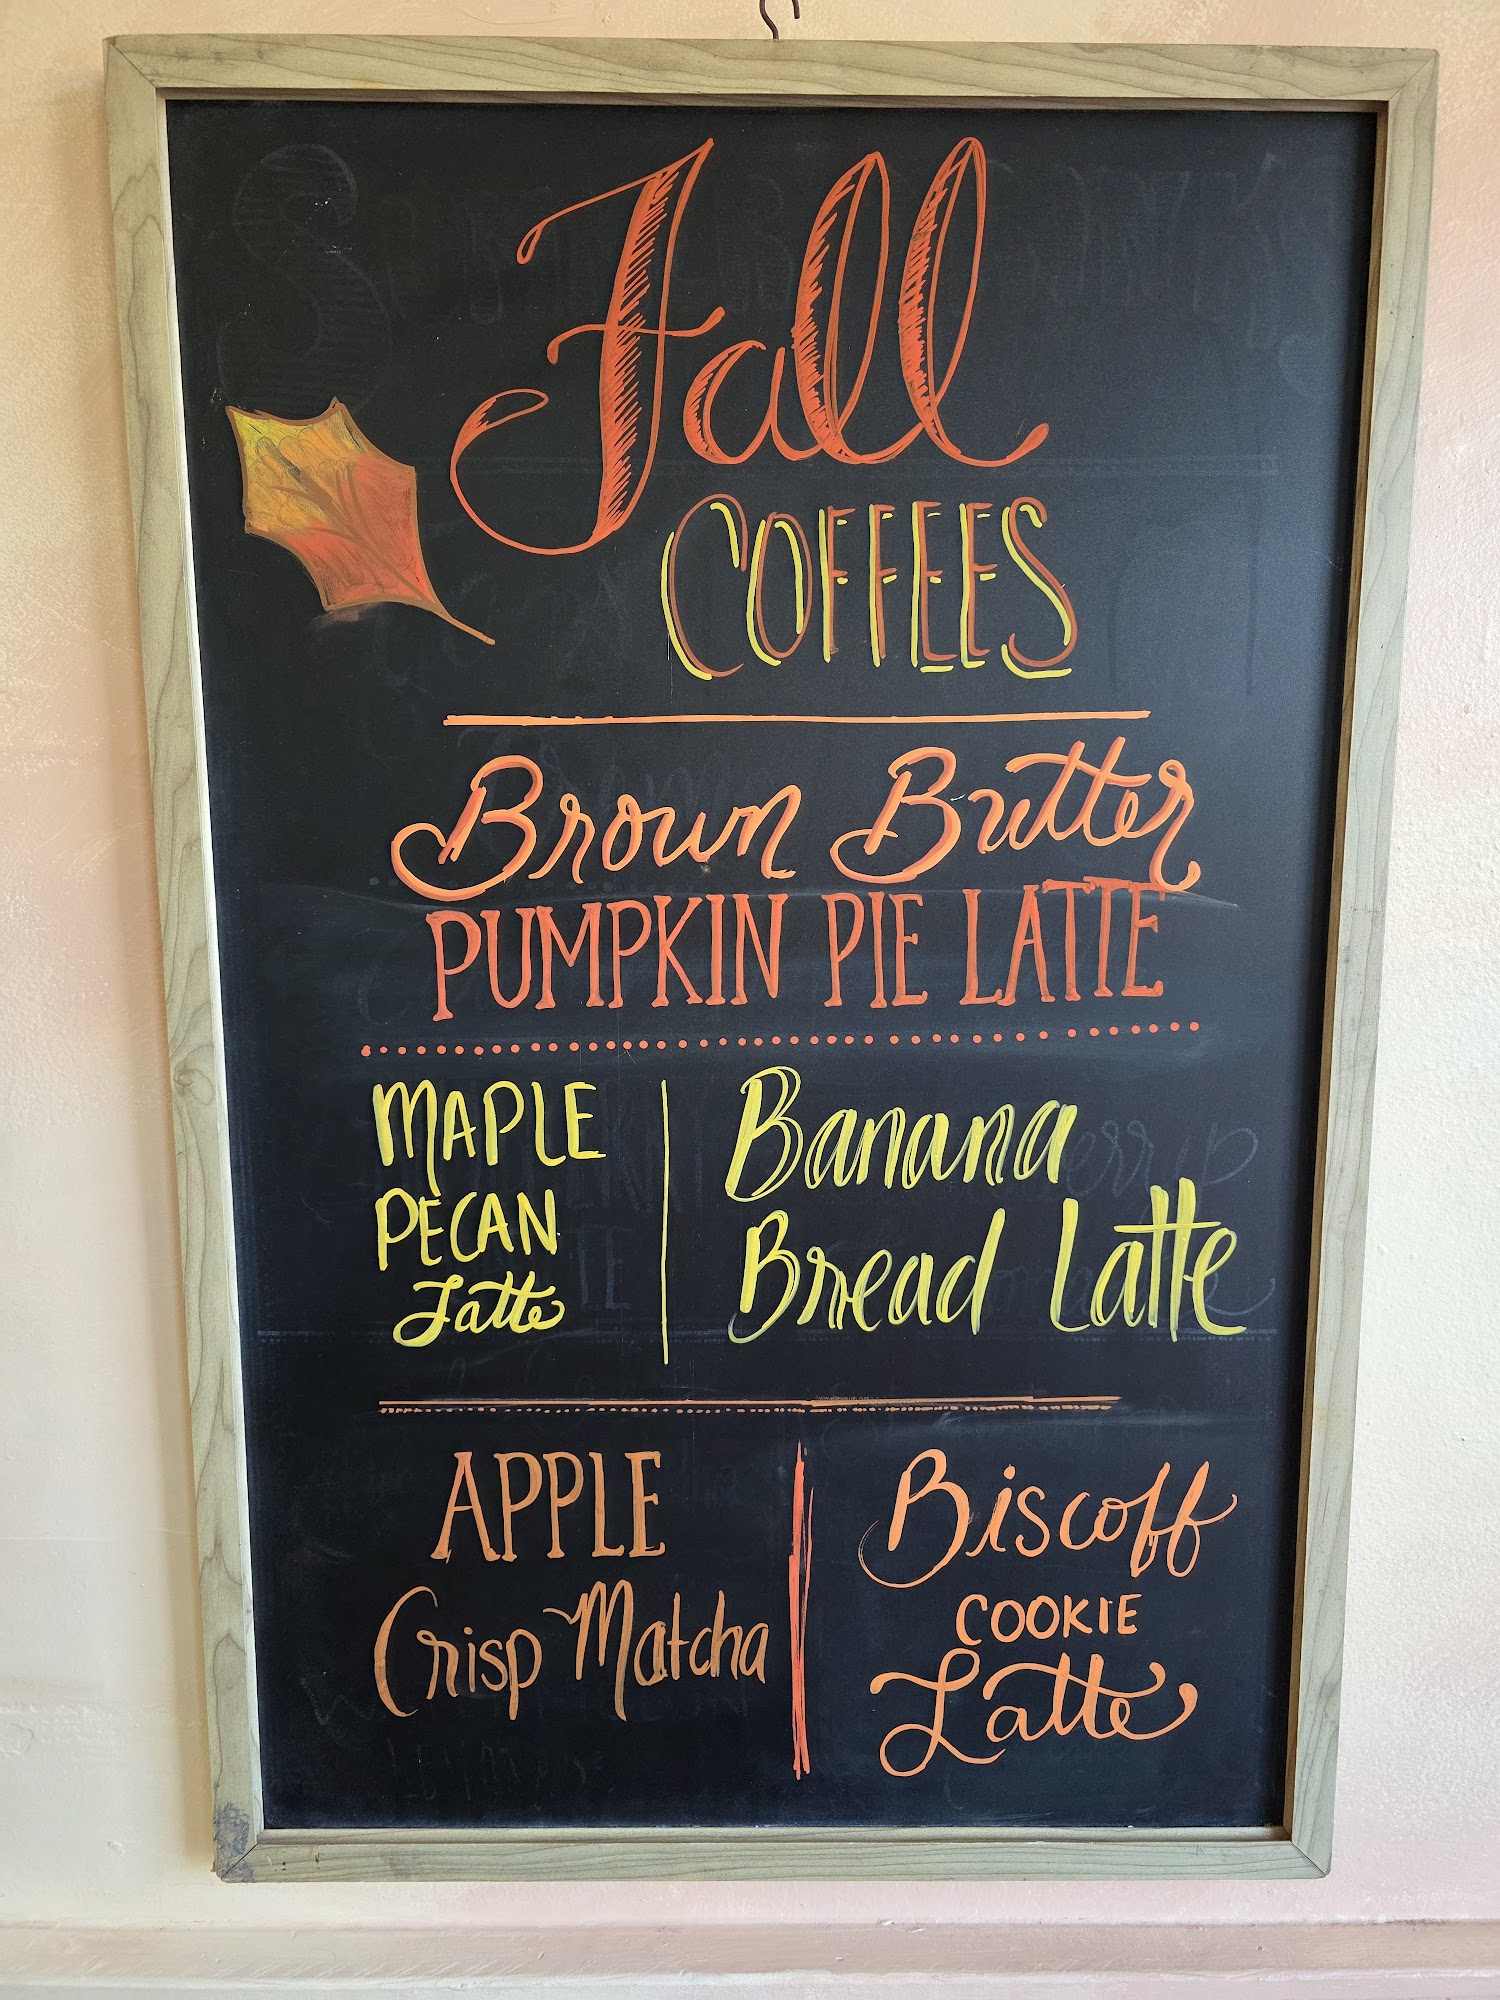 Fall
COFFEES
Brown Butter
PUMPKIN PIE LATTE
MAPLE
PECAN
Latte
Banana
Bread Latte
APPLE
Crisp Matcha
Biscoff
COOKIE
Latte